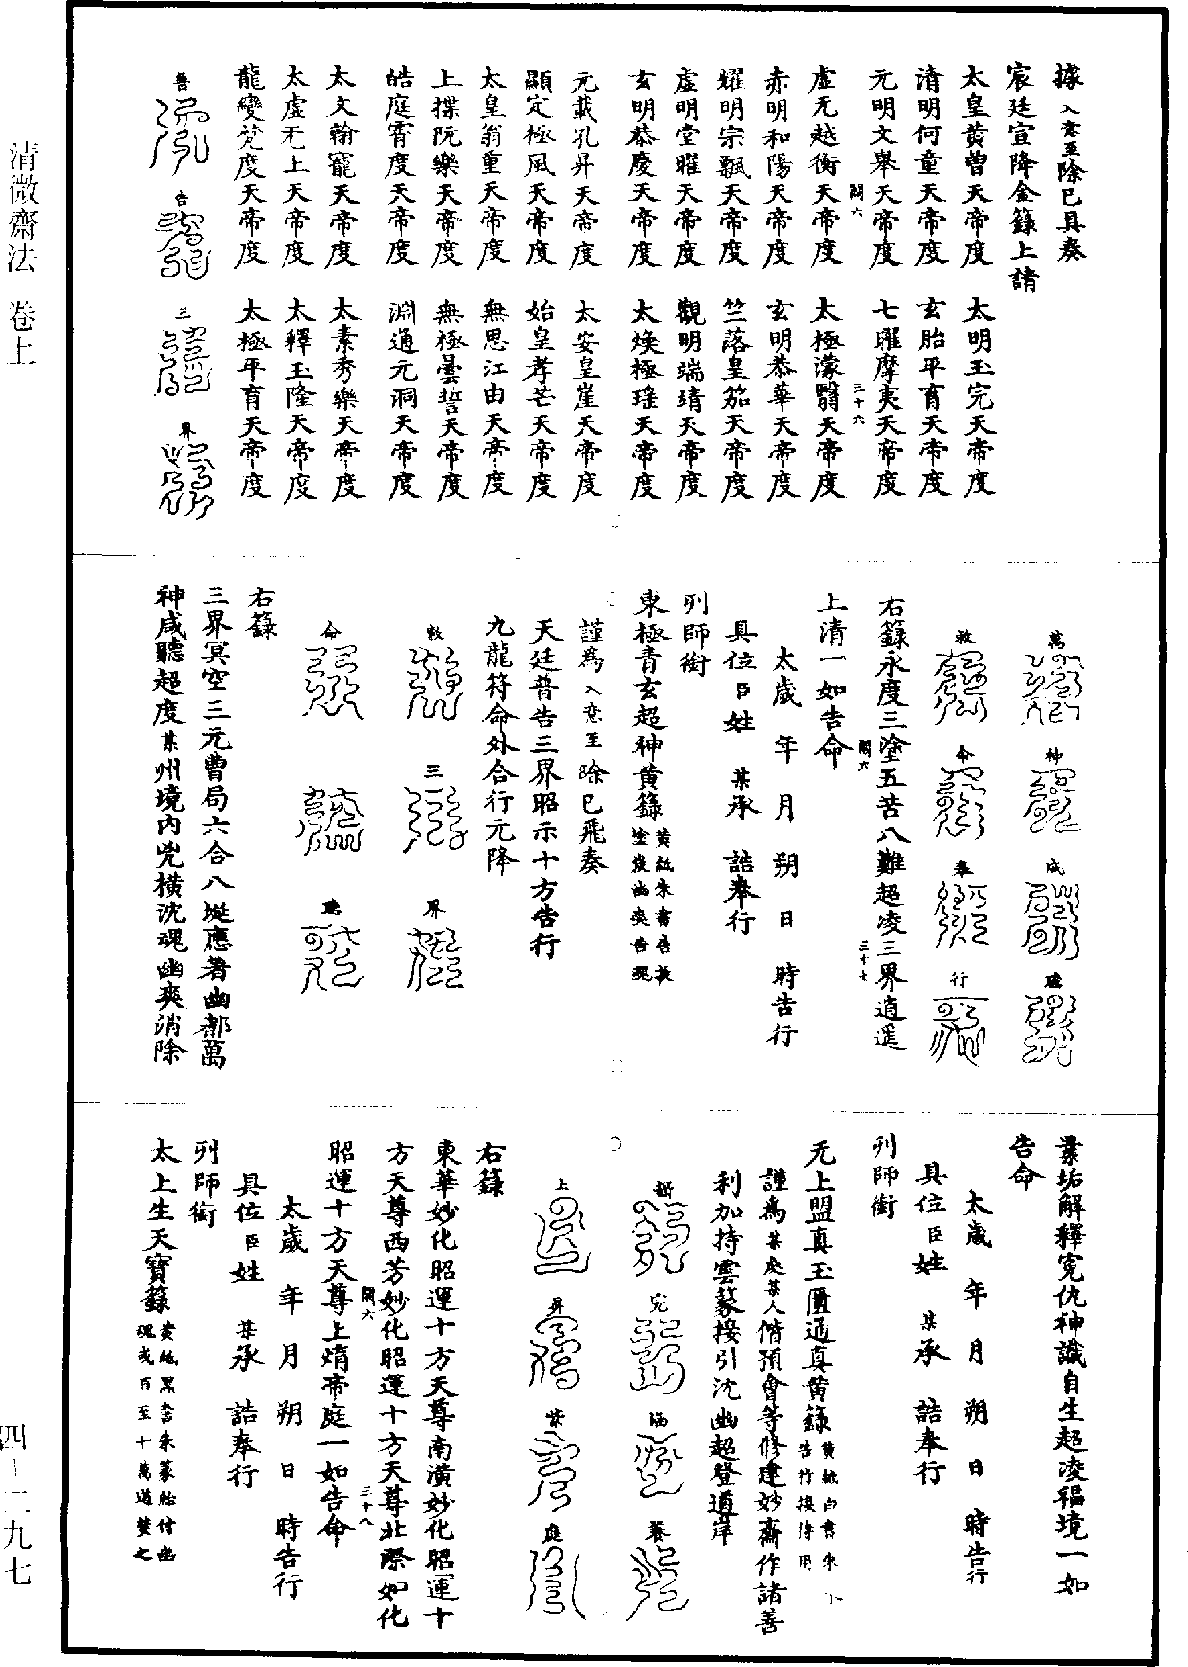 清微齋法 卷上
據入意至除已具奏
宸廷宣降金籙上請
太皇黃曾天帝度 太明玉完天帝度
清明何童天帝度 玄胎平育天帝度
元明文舉天帝度 七曜摩夷天帝度
闕六 三十六
虛无越衡天帝度 太極濛翳天帝度
赤明和陽天帝度 玄明恭華天帝度
耀明宗飄天帝度 竺落皇笳天帝度
虛明堂曜天帝度 觀明端靖天帝度
玄明恭慶天帝度 太煥極瑤天帝度
元載孔昇天帝度 太安皇崖天帝度
顯定極風天帝度 始皇孝芒天帝度
太皇翁重天帝度 無思江由天帝度
上揲阮樂天帝度 無極曇誓天帝度
皓庭霄度天帝度 淵通元洞天帝度
太文翰寵天帝度 太素秀樂天帝度
太虛无上天帝度 太釋玉隆天帝度
龍變梵度天帝度 太極平育天帝度
普 告 三 界
萬 神 咸 聽
敕 命 奉 行
右籙永度三塗五苦八難超凌三界逍遥
闕六 三十七
上清一如告命
太歲 年 月 朔 日 時告行
具位臣姓 某承 誥奉行
列師銜
東極青玄超神黃籙黃紙朱書告攝
謹為入意至除已飛奏
天廷普告三界昭示十方告行
九龍符命外合行元降
敕 三 界
命 聽
右籙
三界冥空三元曹局六合八埏應著幽都萬
神咸聽超度某州境内兇橫沈魂幽爽消除
業垢解釋寃仇神識自生超凌福境一如
告命
太歲 年 月 朔 日 時告行
具位臣姓 某承 誥奉行
列師銜
无上盟真玉匱通真黃籙黃紙白書朱
謹為某處某人偕預會等修建妙齋作諸善
利加持雲篆接引沈幽超登道岸
上 昇 紫 庭
右籙
東華妙化昭運十方天尊南潢妙化昭運十
方天尊西芳妙化昭運十方天尊北際妙化
闕六 三十八
昭運十方天尊上熵帝庭一如告命
太歲 年 月 朔 日 時告行
具位臣姓 某承 誥奉行
列師銜
太上生天寶籙黃紙黑書朱篆給付幽
魂或百至十萬道焚之
四—二九七